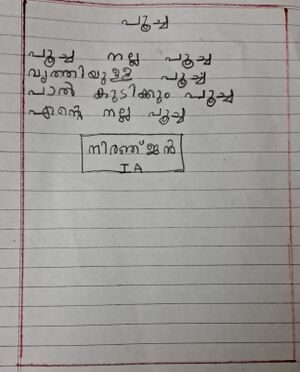 പൂച്ച
പൂച്ച നല്ല പൂച്ച
വൃത്തിയുള്ള പൂച്ച
പാൽ കുടിക്കും പൂച്ച
എന്റെ നല്ല പൂച്ച
നിരഞ്ജൻ
I A